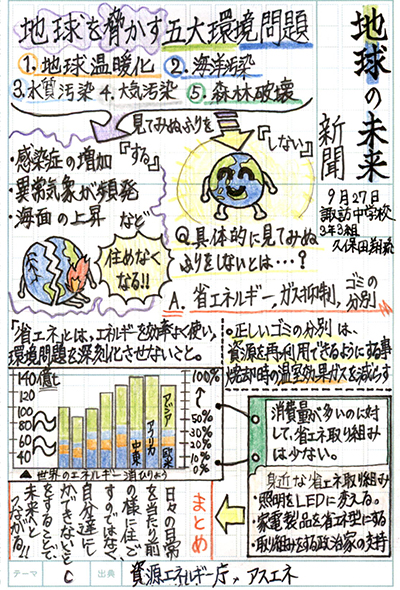 地球の未来
新聞
9月27日
諏訪中学校
2年3組
地球を脅かす五大環境問題
1.地球温暖化 2.海洋汚染
3.水質汚染 4.大気汚染 5.森林破壊
見てみぬふりを
『する』
『しない』
・感染症の増加
・異常気象が頻発
・海面の上昇 など
住めなく
なる!!
Q.具体的に見てみぬ
ふりをしないとは…?
A. 省エネルギー,ガス抑制,ゴミの
分別
「省エネ」とは,エネルギーを効率よく使い,
環境問題を深刻化させないこと。
・正しいゴミの分別は、
資源を再利用できるようにする事
焼却時の温室効果ガスを減らす
140億t
120
100
80
60
40
100%
50%
30%
20%
10%
0%
アジア
アフリカ
中東
欧米
▲世界のエネルギー消ひりょう
消費量が多いのに対
して,省エネ取り組み
は少ない。
身近な省エネ取り組み
・照明をLEDに変える。
・家電製品を省エネ型にする
・取り組みをする政治家の支持
まとめ
日々の日常
を当たり前
の様に住ご
すのではなく,
自分達にし
ができないこと
をすることで,
未来へと
つながる!!
テーマ C 出典 資源エネルギー庁,アスエネ